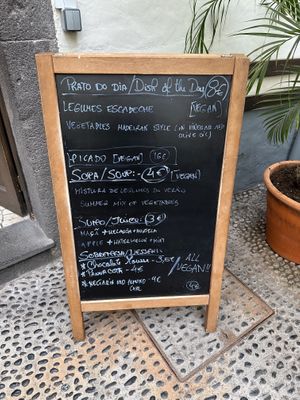 PRATO DO DIA / DISH OF THE DAY 8€
LEGUMES ESCABECHE [VEGAN]
VEGETABLES MADEIRAN STYLE (IN VINEGAR AND
OLIVE OIL)
PICADO [VEGAN] 16€
SOPA/SOUP: - (4€) [VEGAN]
MISTURA DE LEGUMES DO VERÃO
SUMMER MIX OF VEGETABLES
SUMO/JUICE: (3€)
MAÇÃ + MELANCIA + HORTELÃ
APPLE + WATERMELON + MINT
SOBREMESA/DESSERT:
* CHOCOLATE 3,50€
* PANNA COTA - 4€
ALL
VEGAN!!
4€